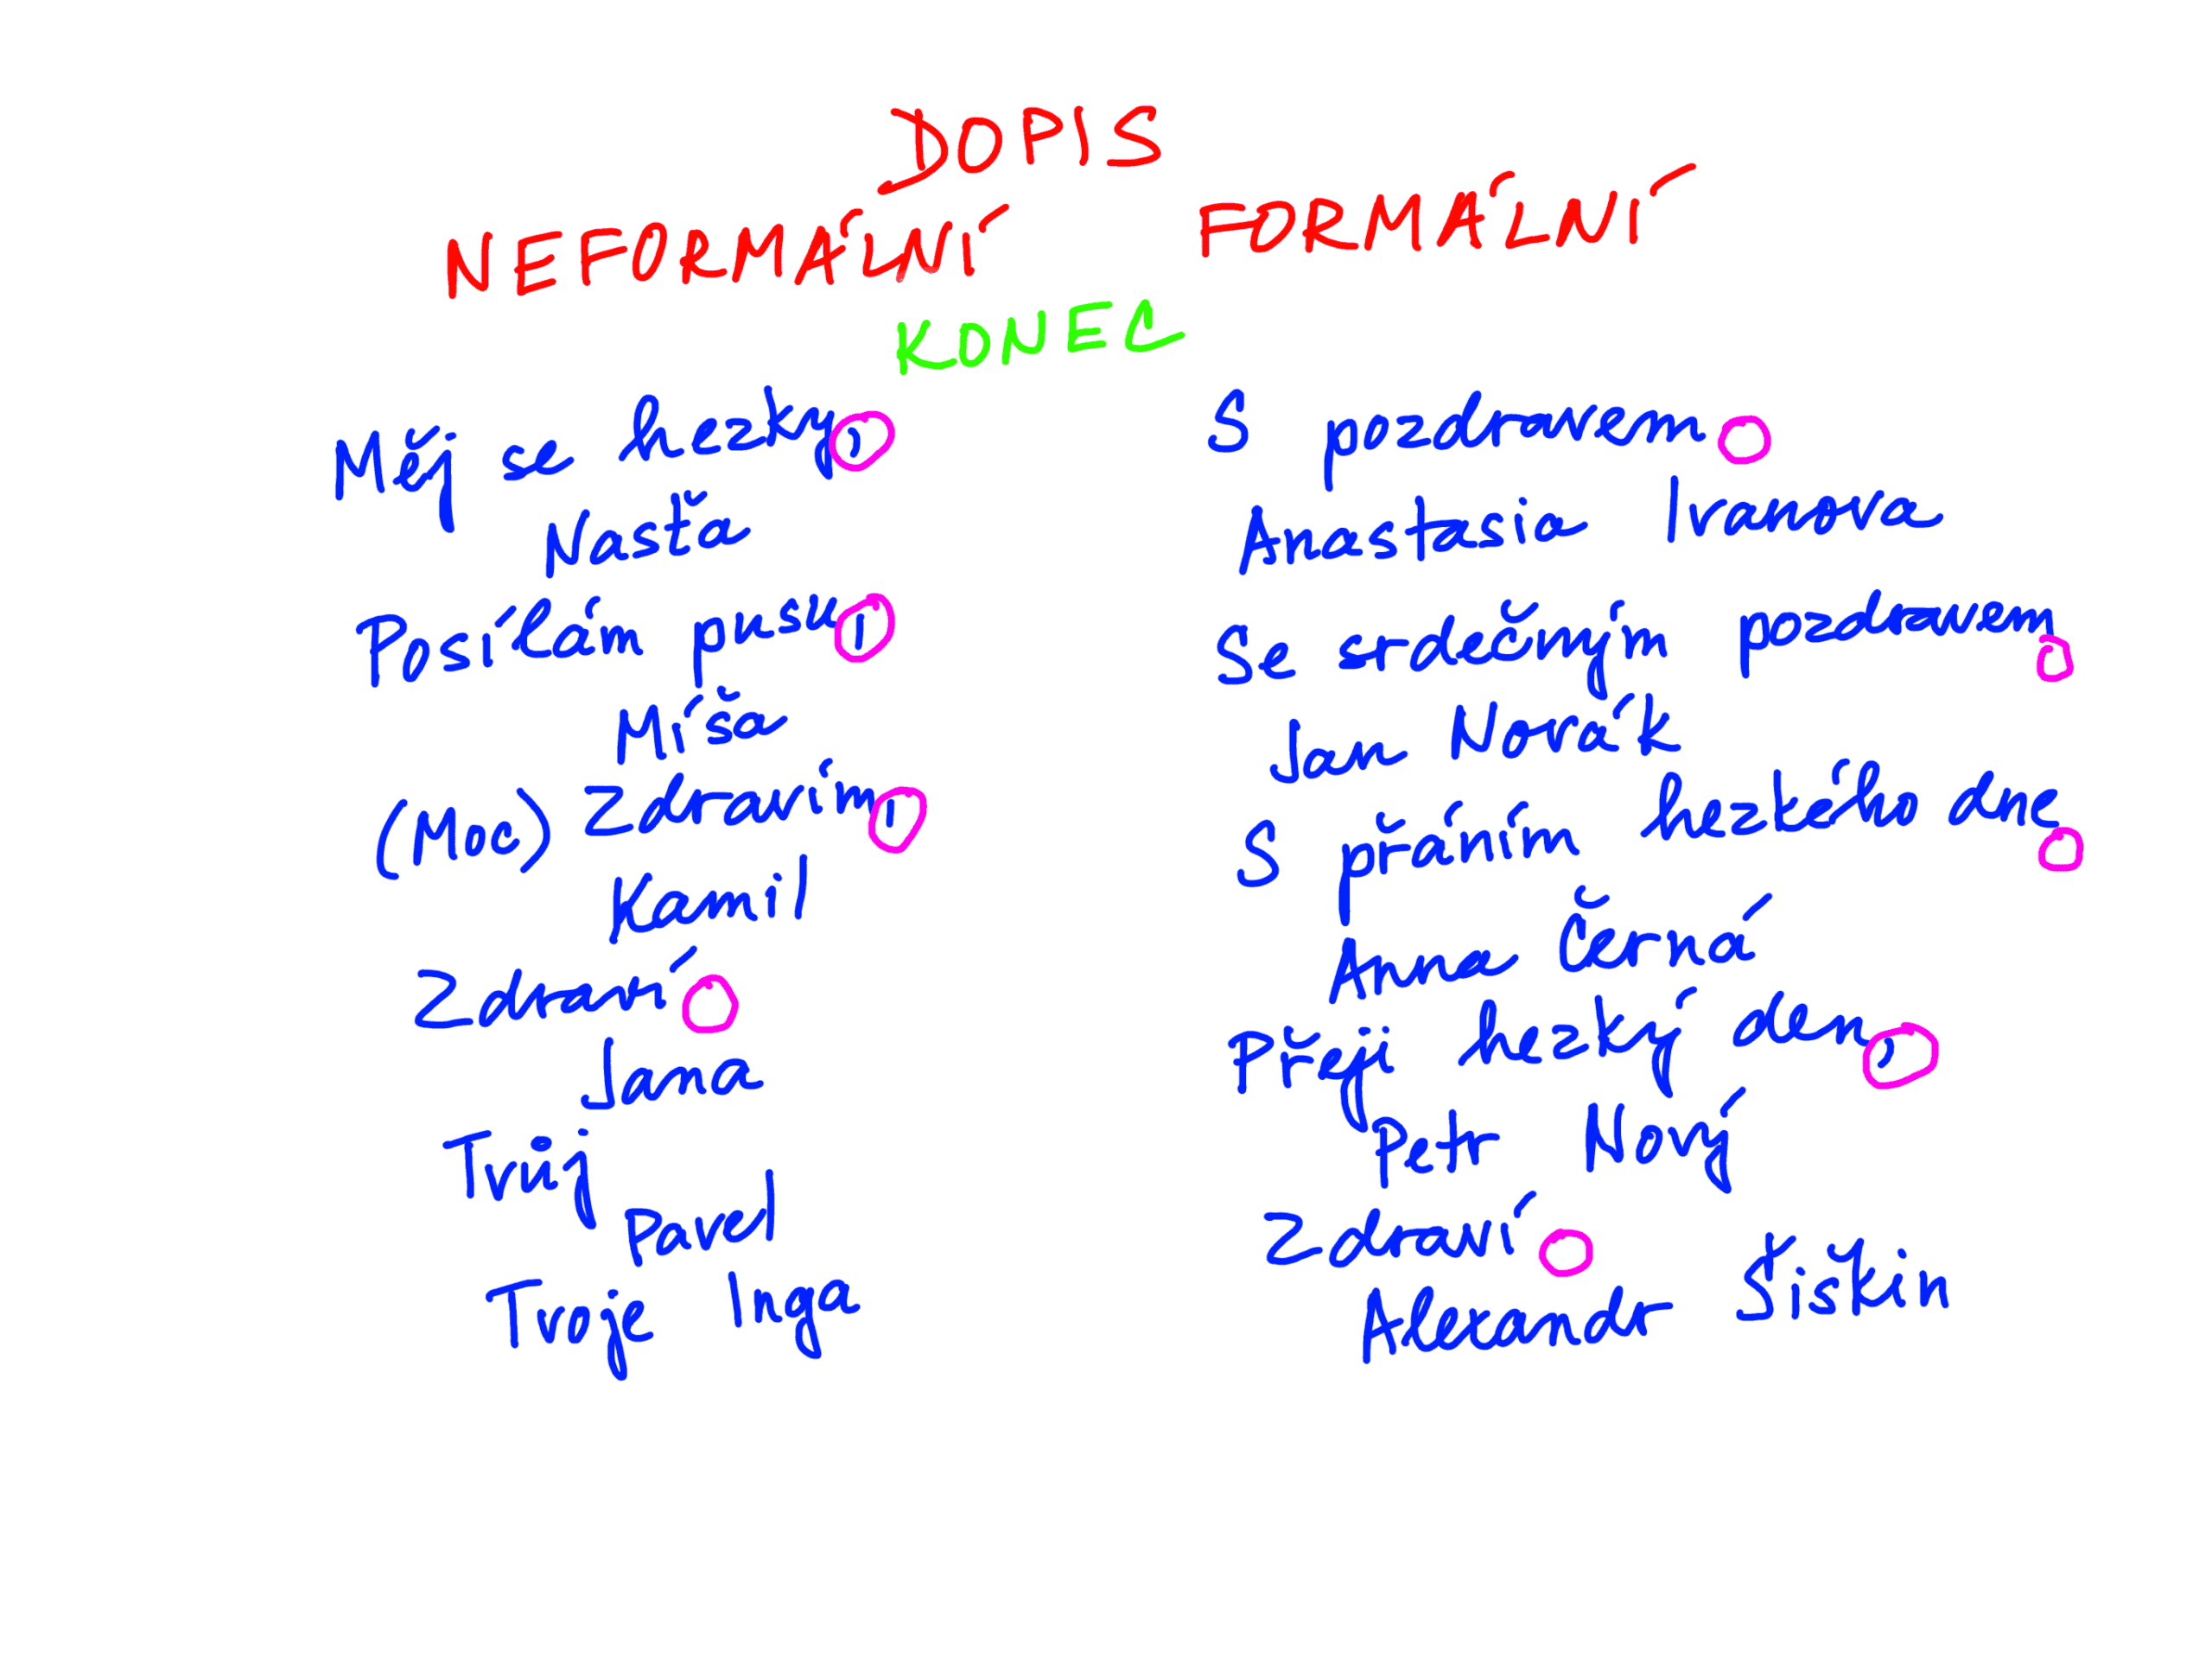 DOPIS
NEFORMÁLNÍ
FORMÁLNÍ
KONEC
Měj se hezky,
Nasťa
Posílám pusu,
Míša
(Moc) Zdravím,
Kamil
Zdraví
Jana
Tvůj
Pavel
Tvoje Inga
S pozdravem
Anastasia Ivanova
Se srdečným pozdravem
Jan Novák
S přáním hezkého dne
Anna Černá
Přeji hezký den,
Petr Nový
Zdraví
Alexandr Šiškin